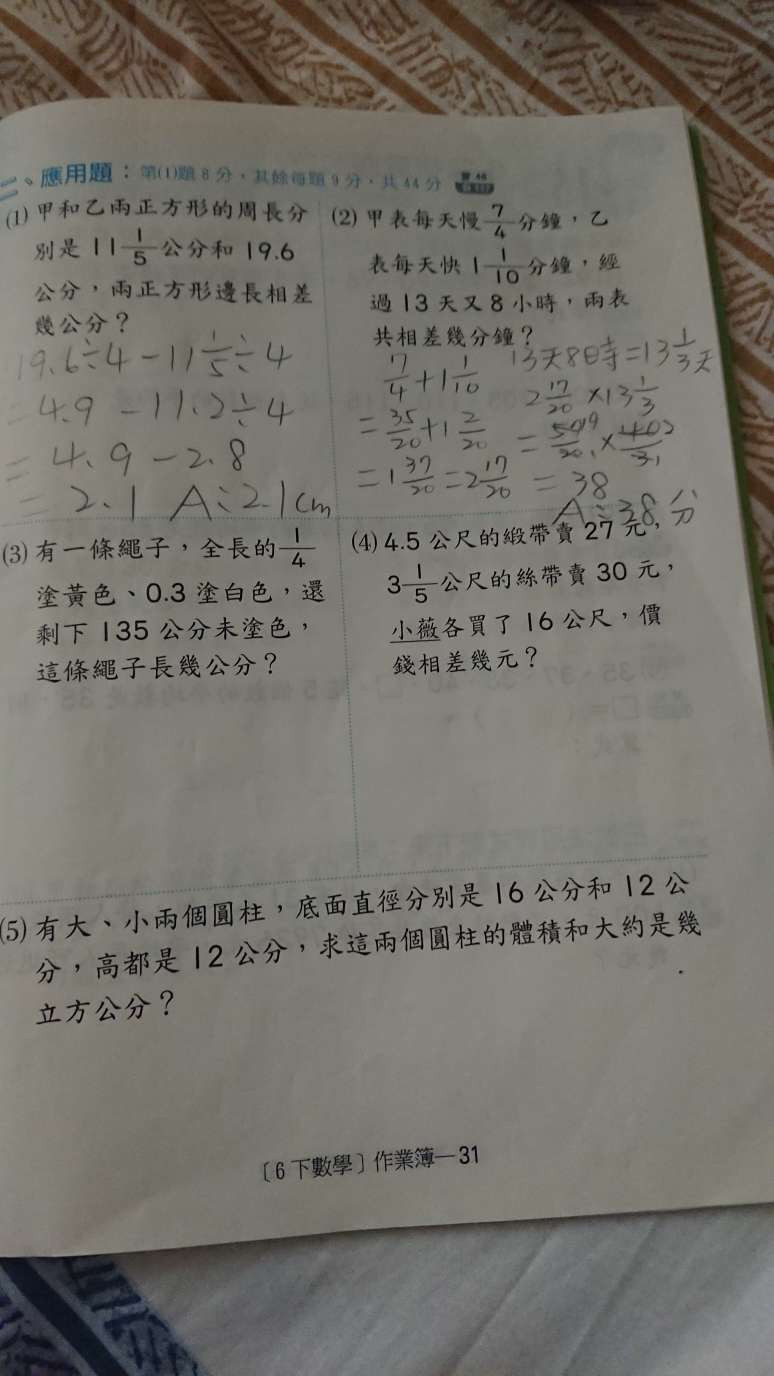 二、應用題：第(1)題 8 分，其餘每題 9 分，共 44 分
(1) 甲和乙兩正方形的周長分
別是 11 1/5 公分和 19.6
公分，兩正方形邊長相差
幾公分？
19.6÷4－11 1/5÷4
=4.9－11.2÷4
=4.9－2.8
=2.1 A:2.1cm
(2) 甲表每天慢 7/4 分鐘，乙
表每天快 1 1/10 分鐘，經
過 13 天又 8 小時，兩表
共相差幾分鐘？
7/4+1 1/10
=35/20+1 2/20
=1 37/20=2 17/20
13天8時=13 1/3天
2 17/20×13 1/3
=57 19/20 1×40 2/3 1
=38
A:38分
(3) 有一條繩子，全長的 1/4
塗黃色、0.3 塗白色，還
剩下 135 公分未塗色，
這條繩子長幾公分？
(4) 4.5 公尺的緞帶賣 27 元，
3 1/5 公尺的絲帶賣 30 元，
小薇各買了 16 公尺，價
錢相差幾元？
(5) 有大、小兩個圓柱，底面直徑分別是 16 公分和 12 公
分，高都是 12 公分，求這兩個圓柱的體積和大約是幾
立方公分？
〔6 下數學〕作業簿—31